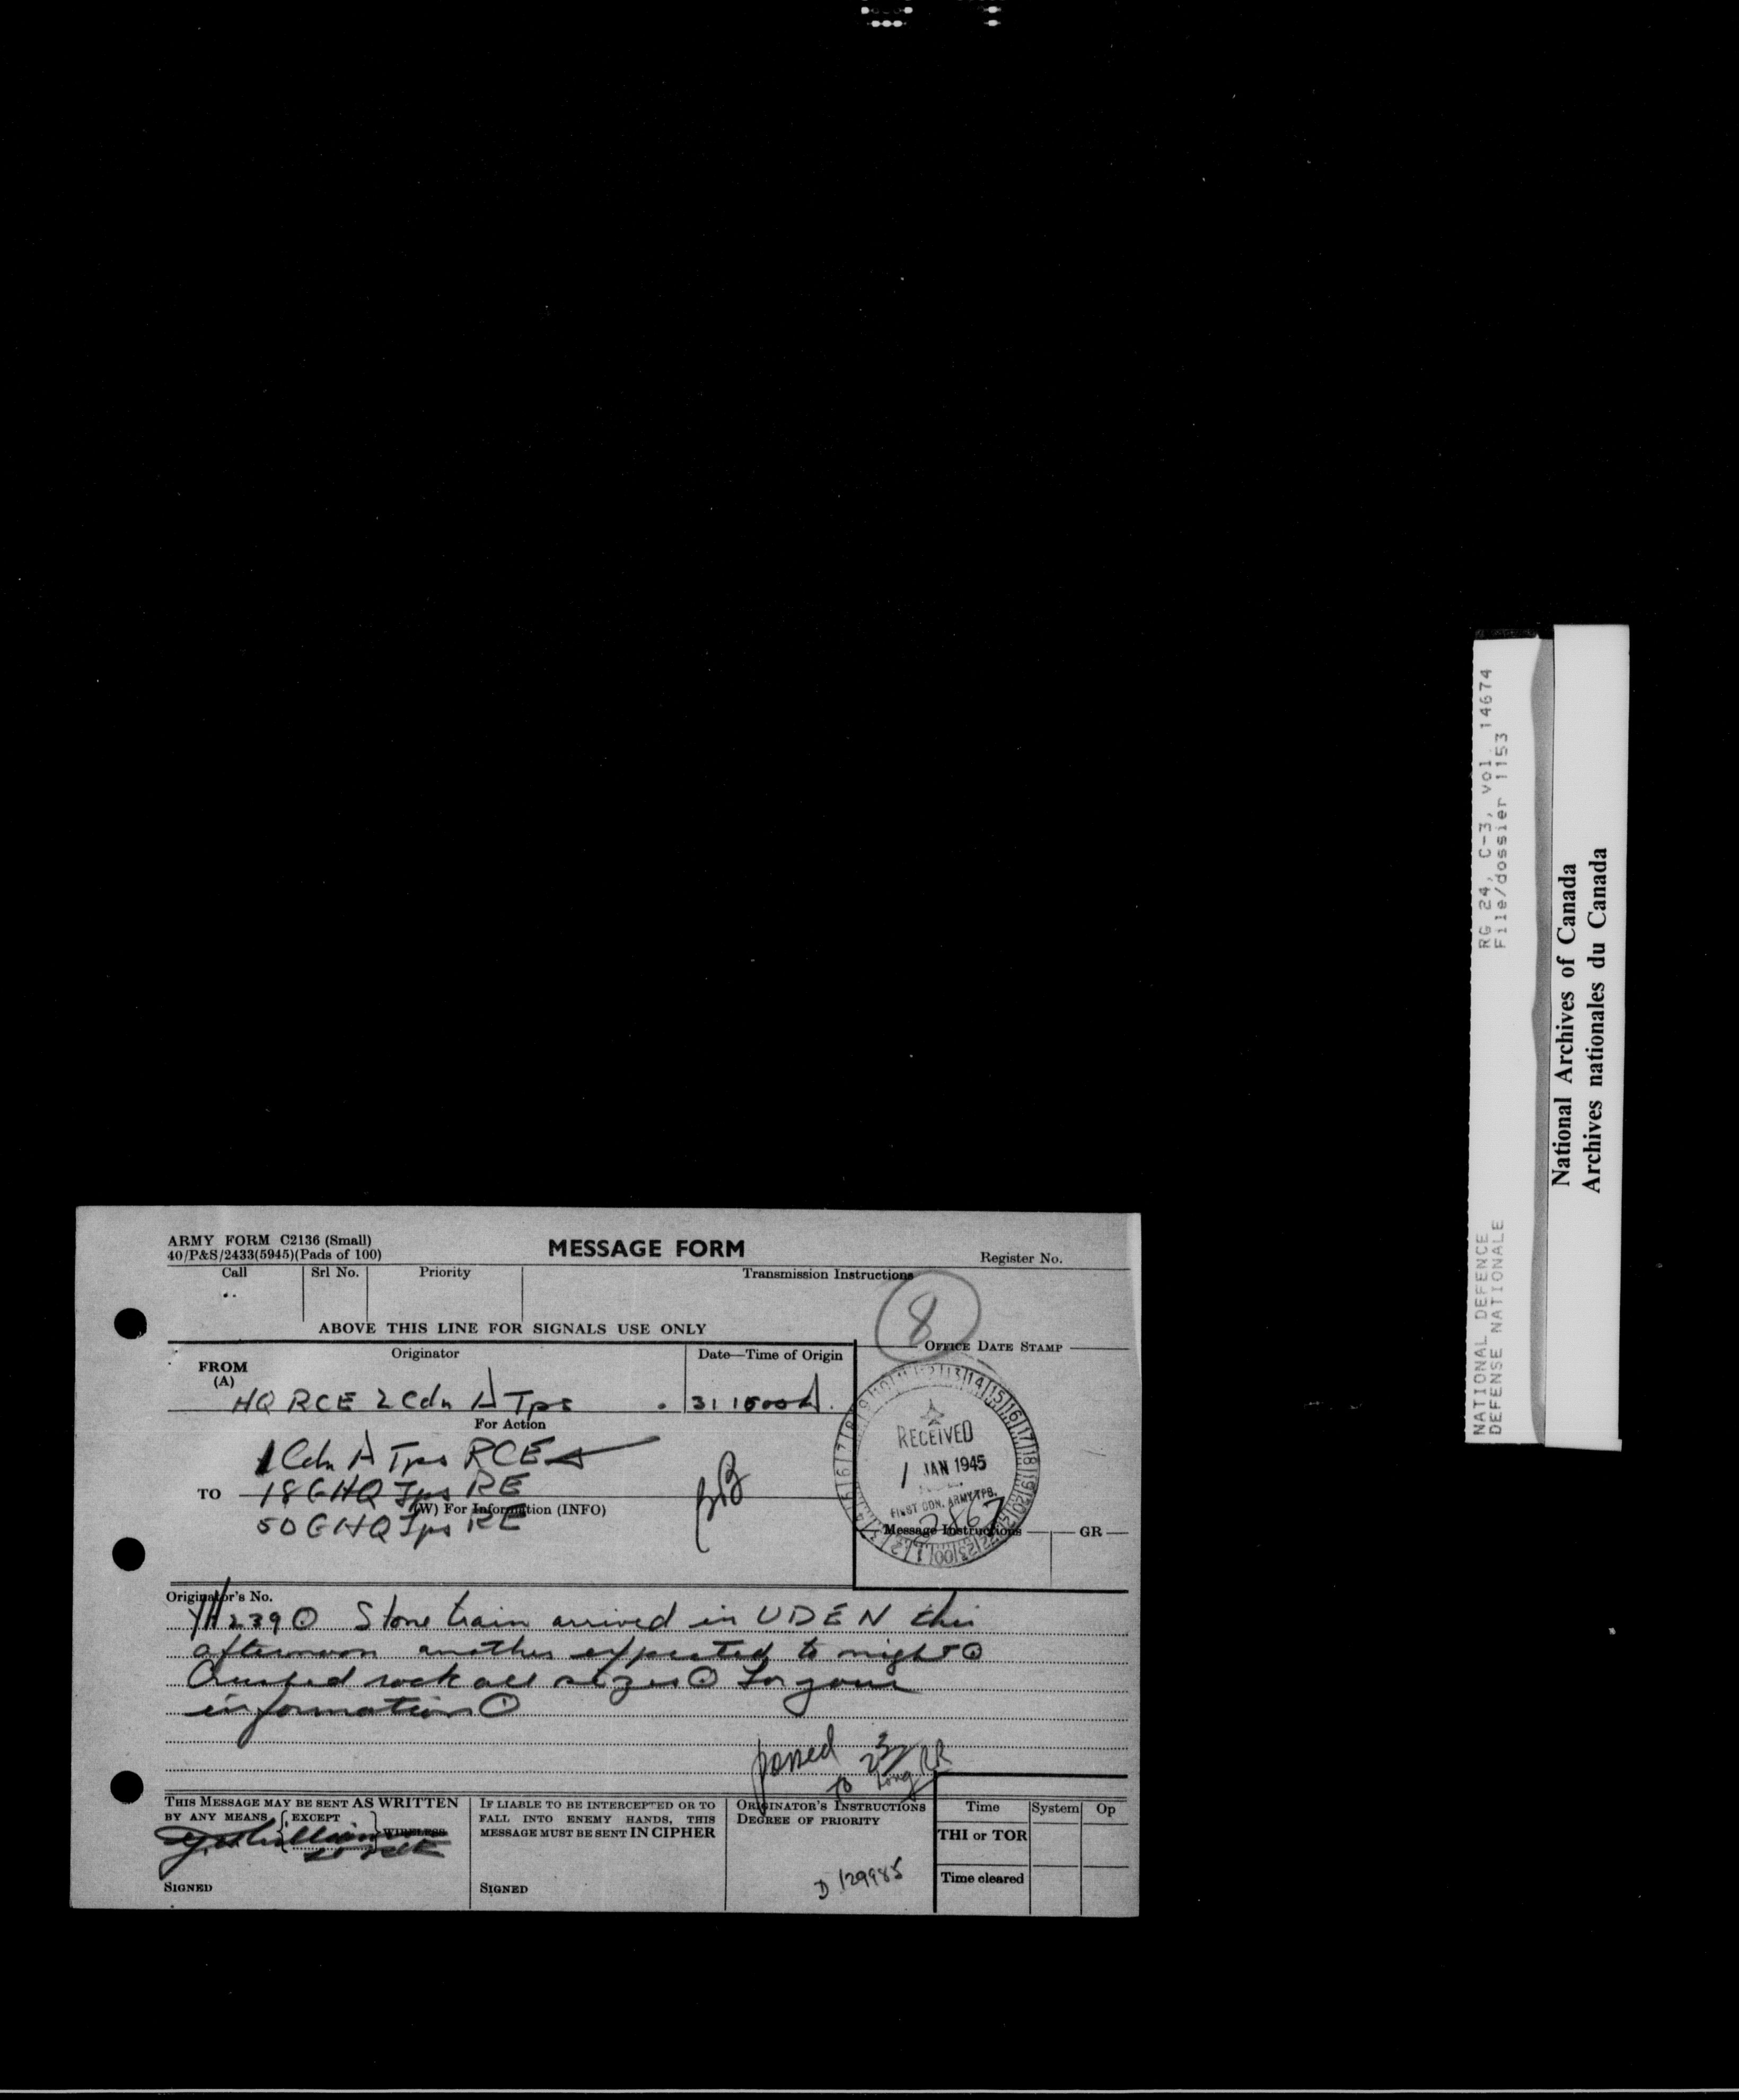 ARMY FORM C2136 (Small)
40/P&S/2433(5945)(Pads of 100)
MESSAGE FORM
Register No.
Call
Srl No.
Priority
Transmission Instructions
8
ABOVE THIS LINE FOR SIGNALS USE ONLY
OFFICE DATE STAMP
FROM
(A)
Originator
Date—Time of Origin
HQ RCE 2 Cdn A Tps
31 1500A
For Action
1 Cdn A Tps RCE
TO
18 GHQ Tps RE
(W) For Information (INFO)
50 GHQ Tps RE
RECEIVED
1 JAN 1945
FIRST CDN. ARMY TPS.
2867
Message Instructions
GR
Originator's No.
YH239 ⊙ Stone train arrived in UDEN this
afternoon another expected to night ⊙
Crushed rock all sizes ⊙ For your
information ⊙
passed
to
THIS MESSAGE MAY BE SENT AS WRITTEN
BY ANY MEANS { EXCEPT } WIRELESS
SIGNED
IF LIABLE TO BE INTERCEPTED OR TO
FALL INTO ENEMY HANDS, THIS
MESSAGE MUST BE SENT IN CIPHER
SIGNED
ORIGINATOR'S INSTRUCTIONS
DEGREE OF PRIORITY
D 129985
Time
System
Op
THI or TOR
Time cleared
RG 24, C-3, vol. 14674
File/dossier 1153
NATIONAL DEFENCE
DEFENSE NATIONALE
National Archives of Canada
Archives nationales du Canada